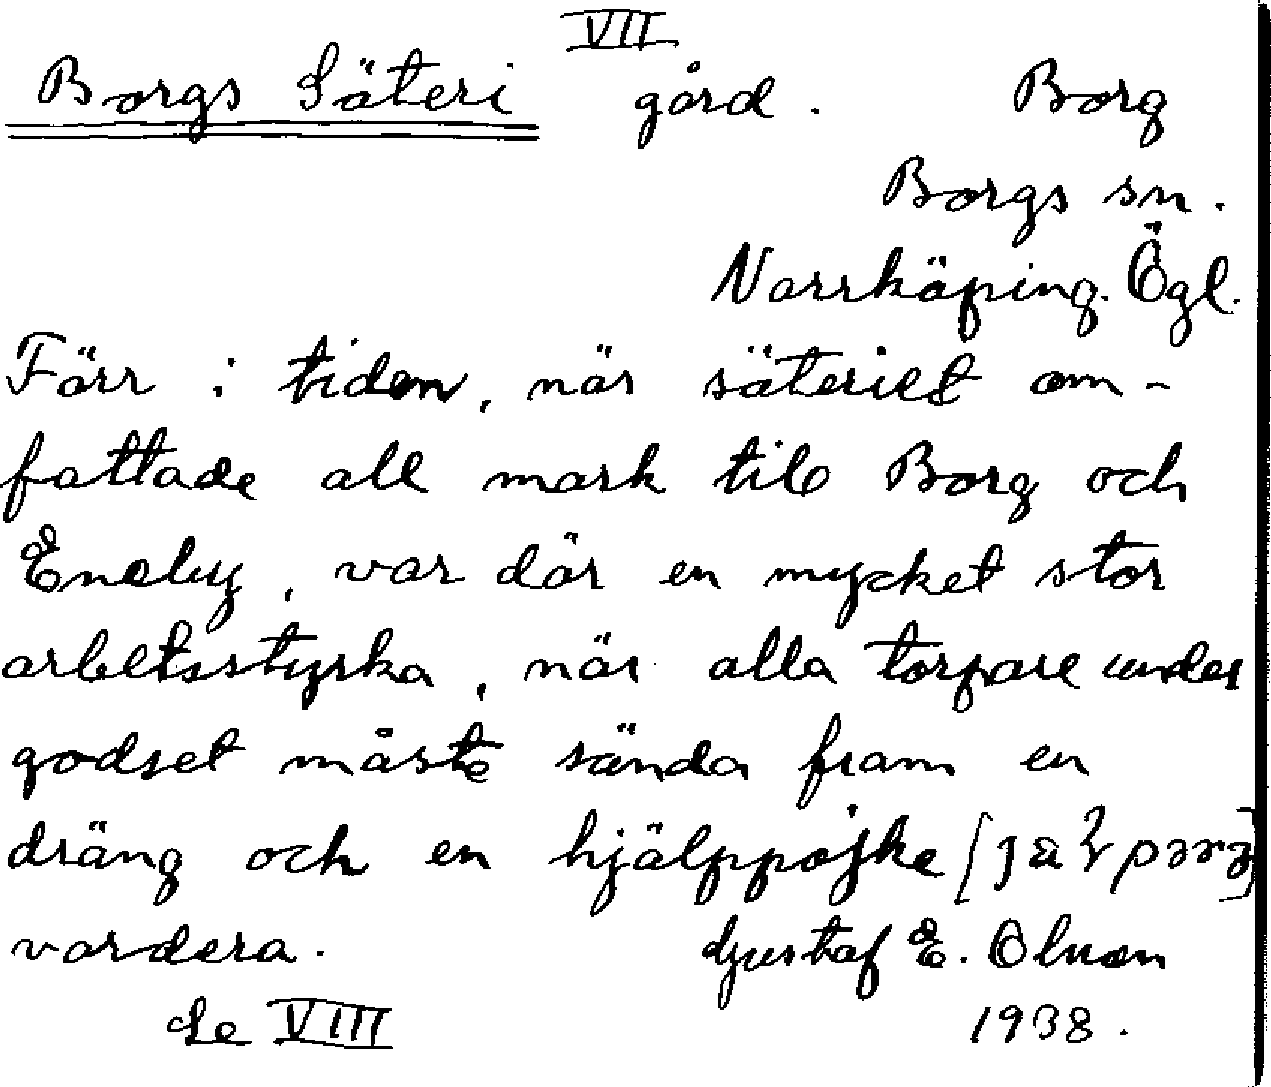 VII
Borgs Säteri gård. Borg
Borgs sn.
Norrköping. Ögl.
Förr i tiden, när säteriet om-
fattade all mark till Borg och
Eneby, var där en mycket stor
arbetsstyrka, när alla torpare under
godset måste sända fram en
dräng och en hjälppojke
vardera. Gustaf E. Olsson
Se VIII 1938.